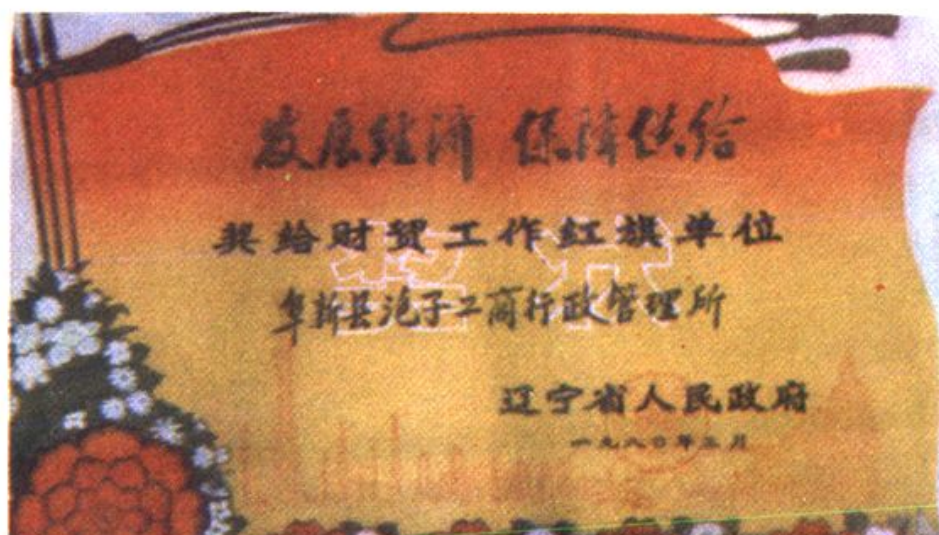 发展经济 保障供给
奖给财贸工作红旗单位
阜新县泡子工商行政管理所
辽宁省人民政府
一九八〇年三月